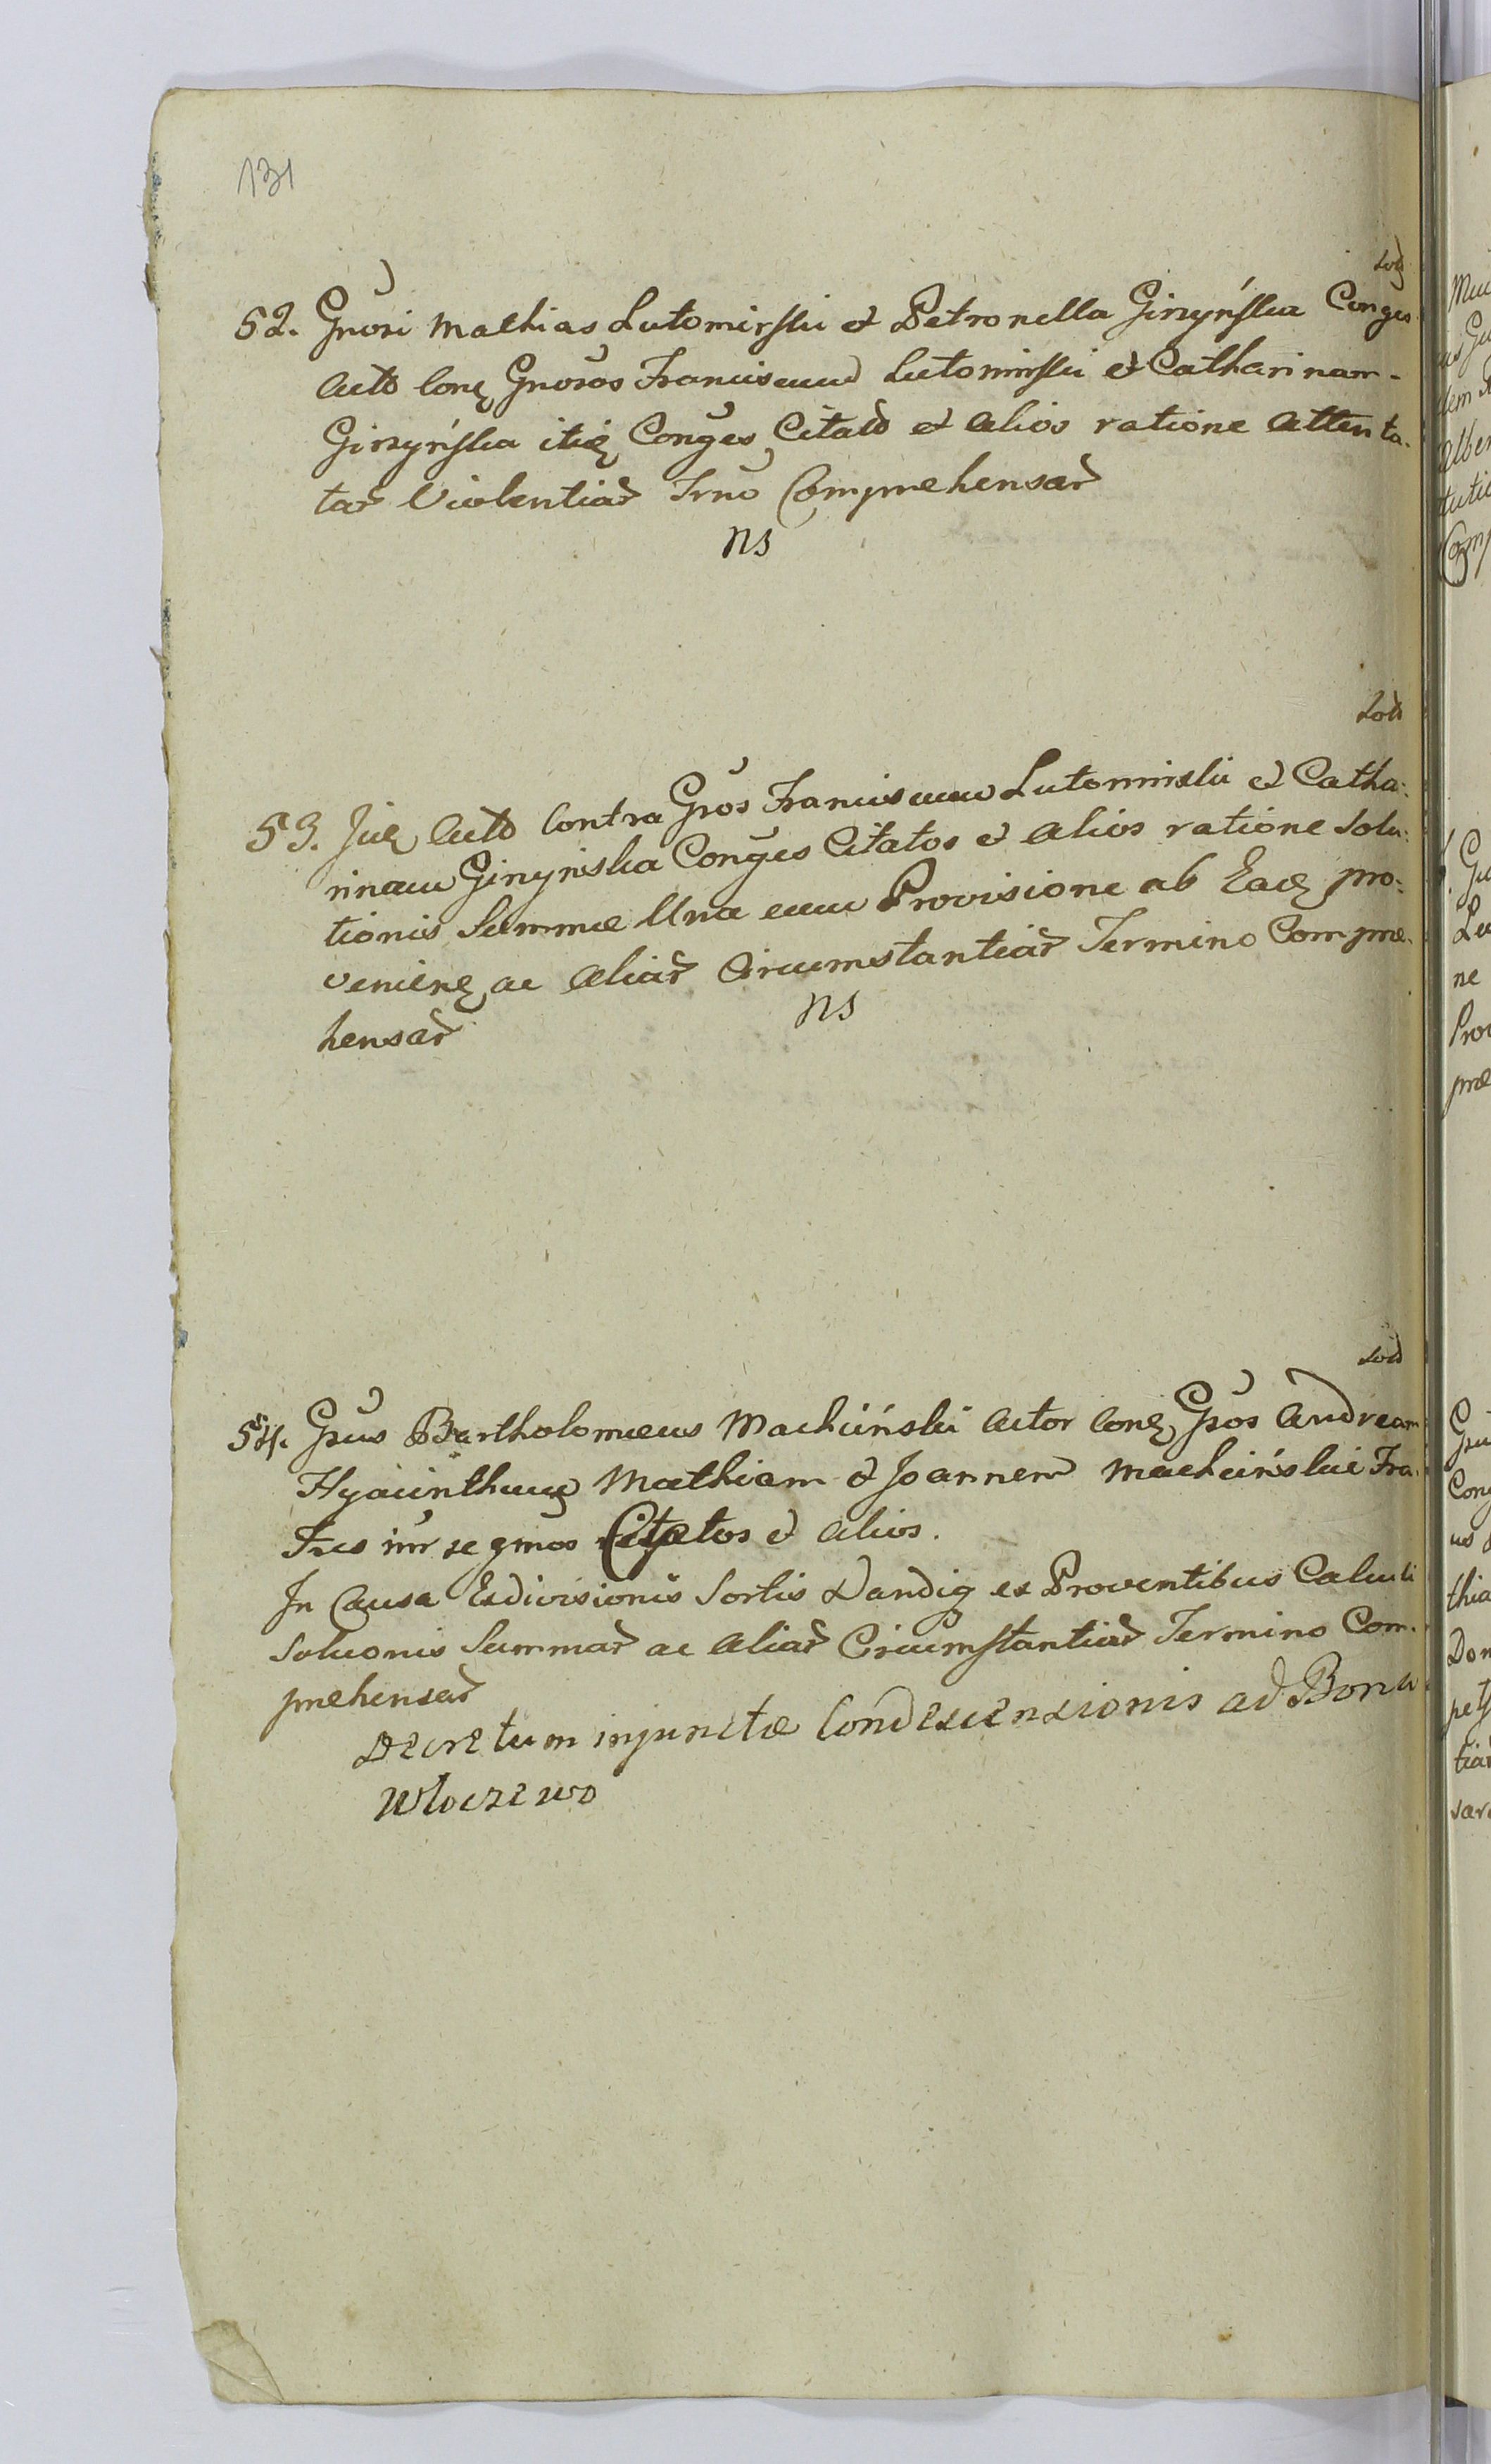 131
52. Gnosi Mathias Lutomirski et Petronella Girzyńska Conges
Actō Conę Gnosos Franciscum Lutomirski et Catharinam-
Girzyńska itię Conges Citatō et Alios ratione Attenta-
tar Violentiar Trno Compræhensar
NS
53. Jię Actō Contra Gsos Franciscum Lutomirski et Catha:
rinam Girzyńska Conges Citatos et Alios ratione Solu:
tionis Summæ Una cum Provisione ab Eadę pro:
venienę ac Aliar Circumstantiar Termino Compræ-
hensar
NS
54. Gsus Bartholomæus Machciński Actor Conę Gsos Andream
Hyacinthum Mathiam et Joannem Machciński Fra-
Tres inr se gmos Citatos et Alios.
In Causa Exdivisionis Sortis Dandię ex Proventibus Calculi
Soluonis Summar ac Aliar Circumstantiar Termino Com-
præhensar
Decretum injunctæ Condescensionis ad Bona
Wloczewo